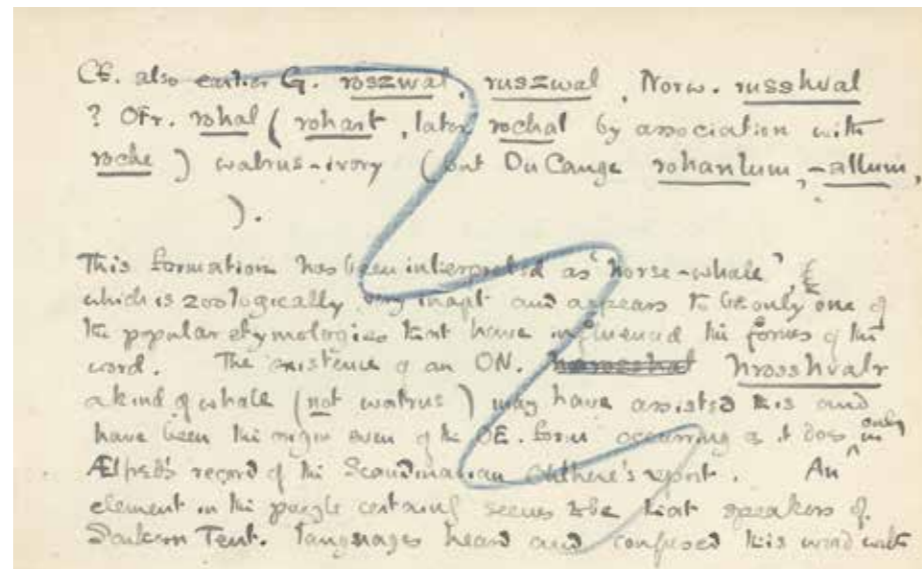 Cf. also earlier G. roszwal, russwal, Norw. russhval
? OFr. rohal (rohart, later rochal by association with
roche) walrus-ivory (but Du Cange rohanlum, -allum,
).
This formation has been interpreted as 'horse-whale',
which is zoologically very inapt and appears to be only one of
the popular etymologies that have influenced the forms of the
word. The existence of an ON. hrosshvalr
a kind of whale (not walrus) may have assisted this and
have been the origin even of the OE. form occurring as it does only in
Ælfred's record of the Scandinavian Ohthere's report. An
element in the puzzle certainly seems to be that speakers of
Teut. languages heard and confused this word with